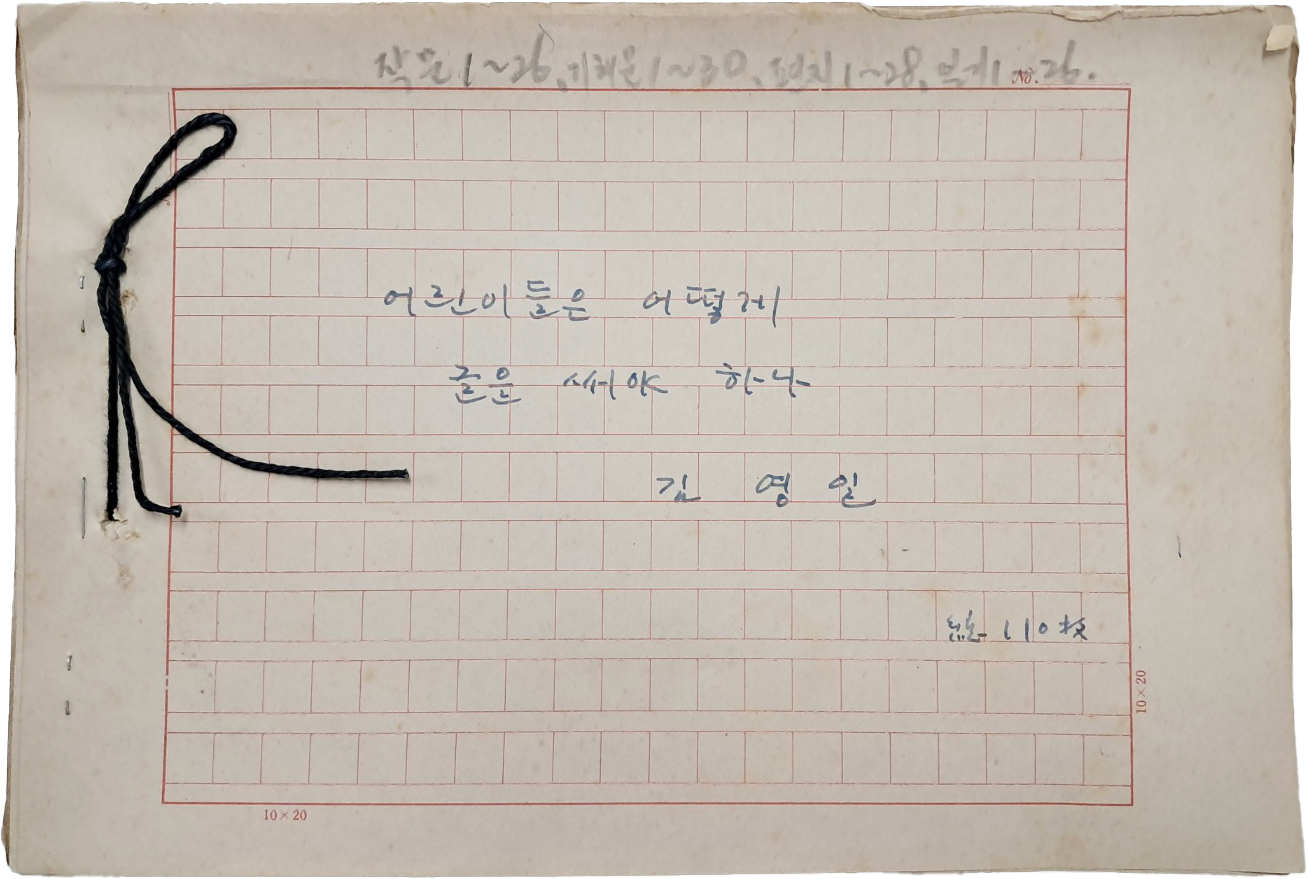 작문 1~26, 기행문 1~30, 편지 1~28, 일기 1~26.
No.
어린이들은 어떻게
글은 써야 하나
김 영 일
總 110枚
10×20
10×20